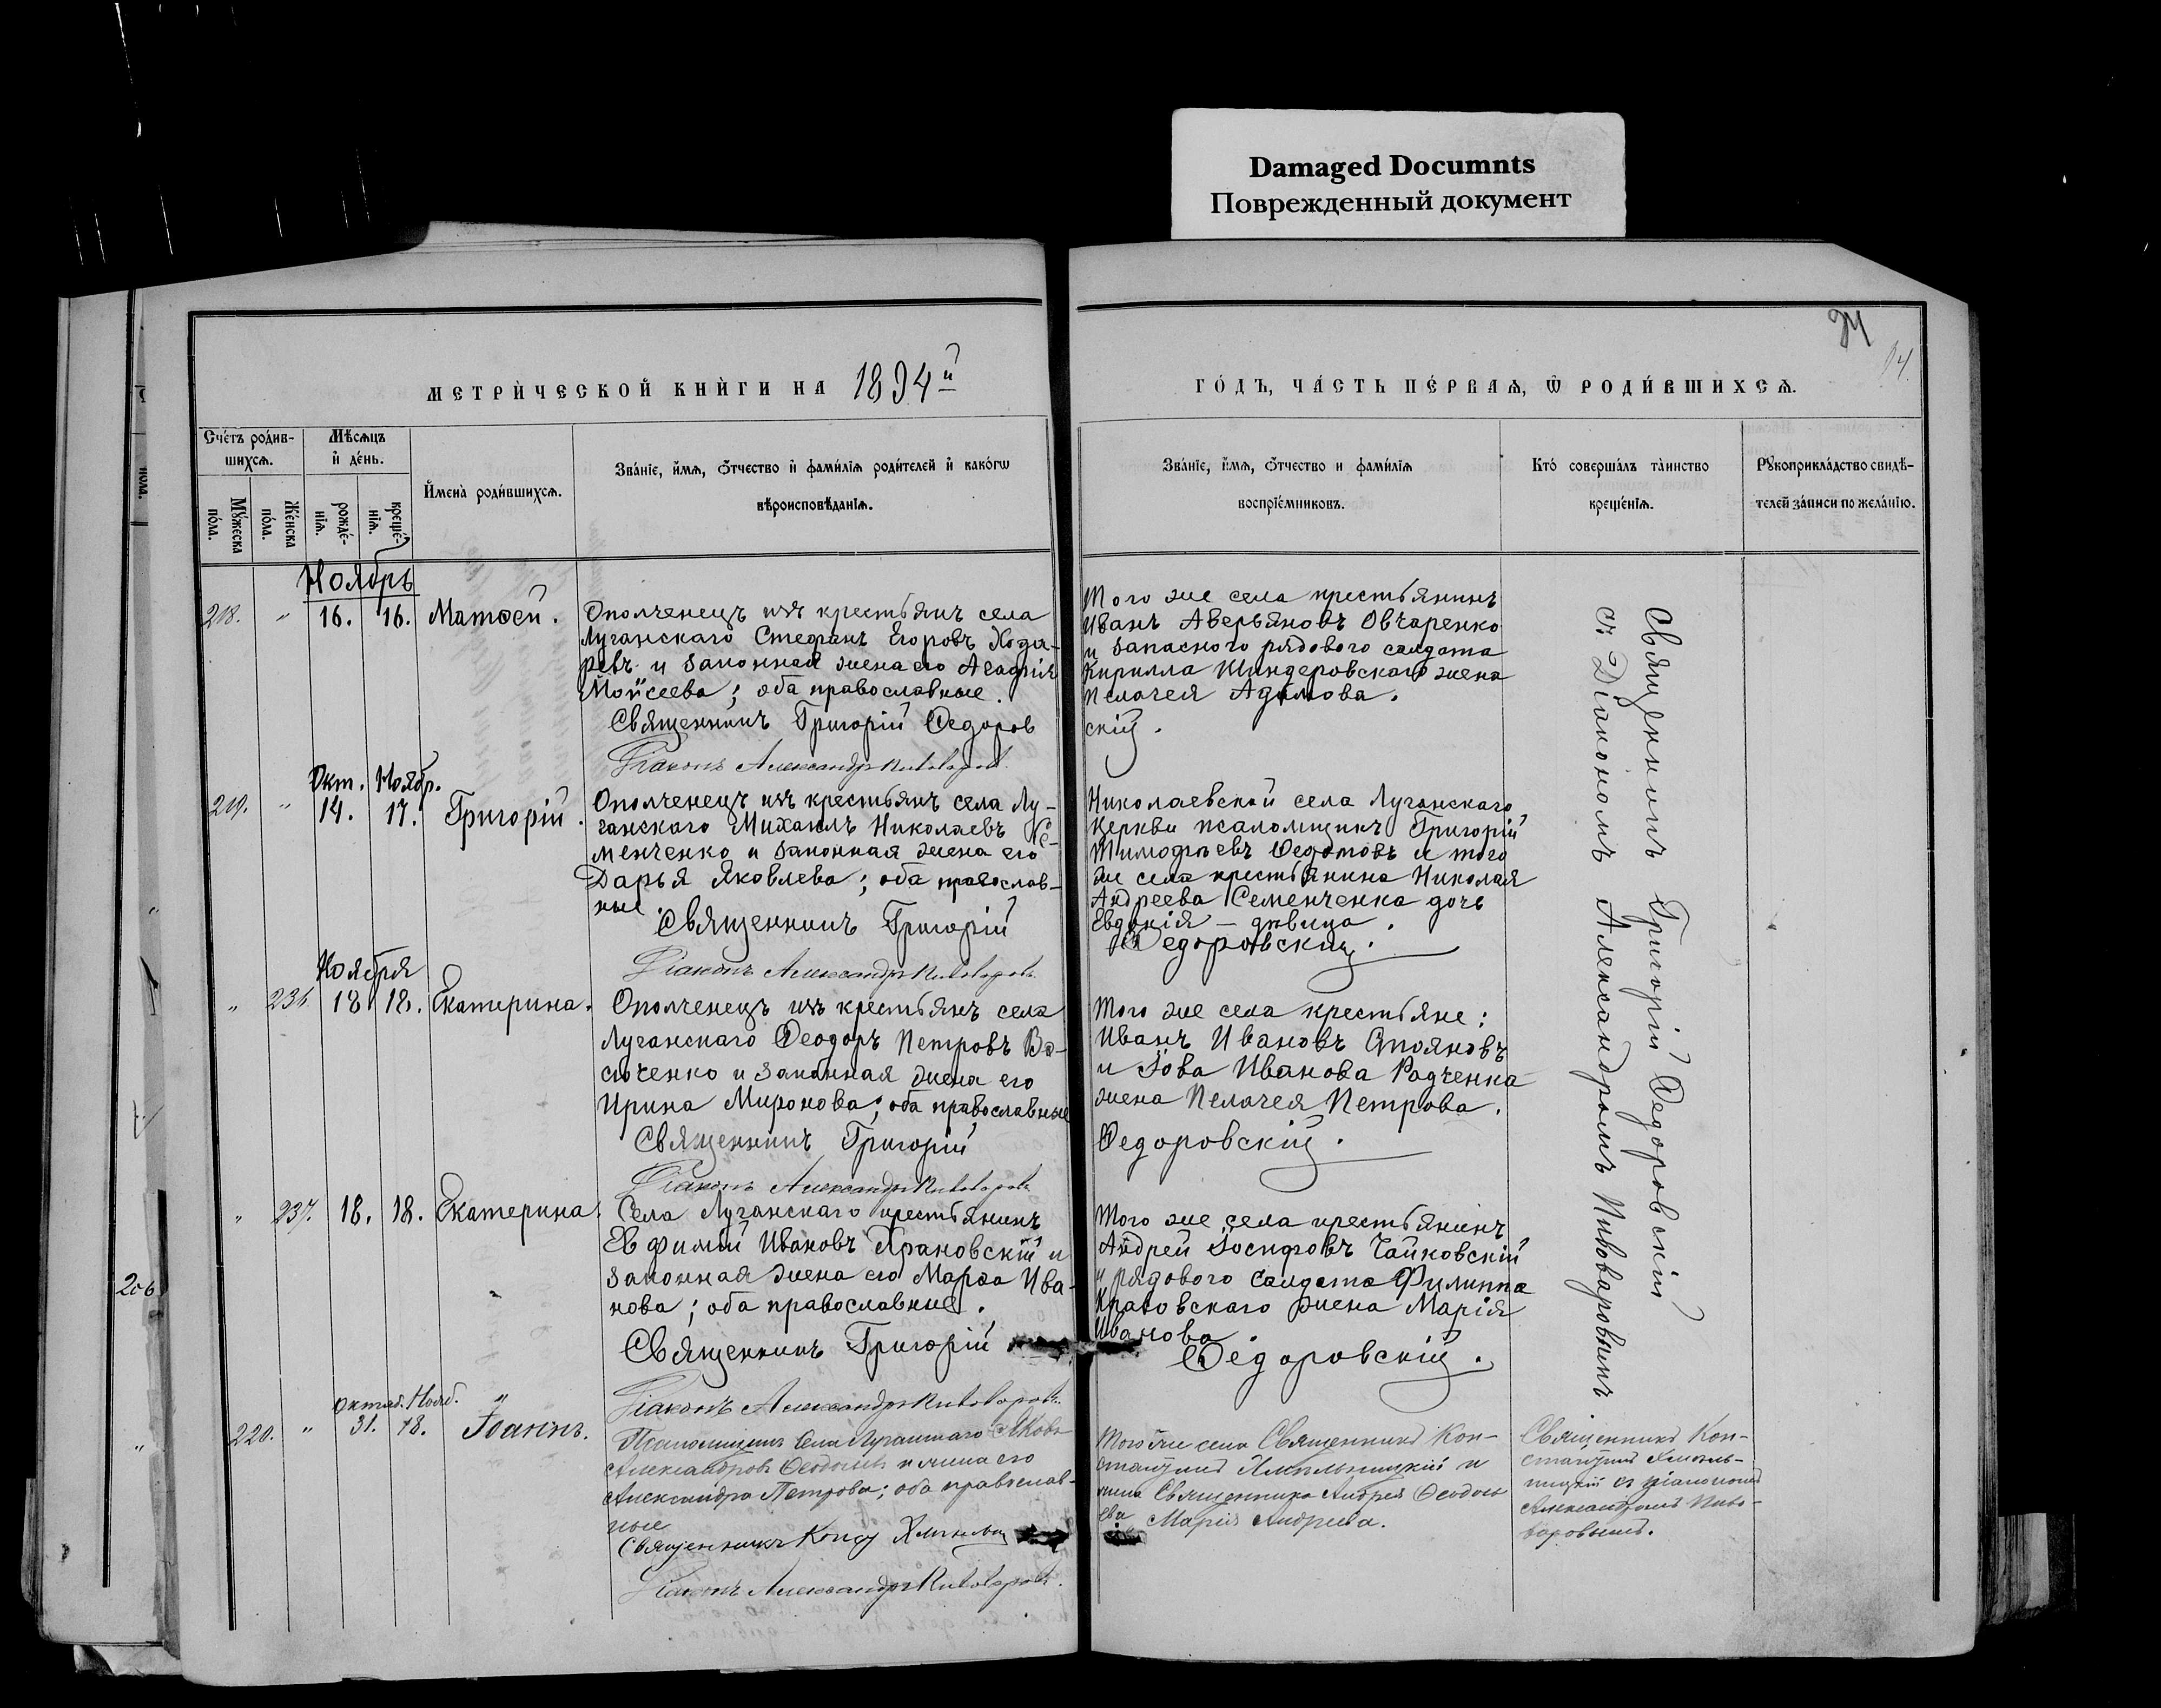 Damaged Documnts
Поврежденный документ
МЕТРИ́ЧЕСКОЙ КНИ́ГИ НА 1894й
ГО́ДЪ, ЧА́СТЬ ПЕ́РВАЯ, Ѿ РОДИ́ВШИХСѦ.
Сче́тъ роди́в-
шихсѧ.
Мꙋ́жеска
по́ла.
Же́нска
по́ла.
Мѣ́сѧцъ
и҆ де́нь.
рожде́-
нїѧ.
креще́-
нїѧ.
И҆мена̀ роди́вшихсѧ.
Зва́нїе, и҆́мѧ, ѻ҆́тчество и҆ фами́лїѧ роди́телей и҆ како́гѡ
вѣроисповѣ́данїѧ.
Зва́нїе, и҆́мѧ, ѻ҆́тчество и фами́лїѧ
воспрїе́мниковъ.
Кто̀ соверша́лъ та́инство
креще́нїѧ.
Рꙋкоприкла́дство свидѣ́-
телей за́писи по жела́нїю.
Ноябрь
218. " 16. 16. Матѳей.
Ополченецъ изъ крестьянъ села
Луганскаго Стефанъ Егоровъ
и законная жена его Агафія
Моѵсеева; оба православные.
Священникъ Григорій Федоров
Діаконъ Александръ Пивоваровъ
Того же села крестьянинъ
Иванъ Аверьяновъ Овчаренко
и запаснаго рядового солдата
Кирилла Шиндеровскаго жена
Пелагея Адамова.
скій.
Окт. Ноябр.
219. " 14. 17. Григорій.
Ополченецъ изъ крестьянъ села Лу-
ганскаго Михаилъ Николаевъ Се-
менченко и законная жена его
Дарья Яковлева; оба православ-
ные.
Священникъ Григорій
Діаконъ Александръ Пивоваровъ
Николаевской села Луганскаго
церкви псаломщикъ Григорій
Тимофѣевъ Федотовъ и того
же села крестьянина Николая
Андреева Семенченка дочь
Евдокія – дѣвица.
Федоровскій.
Ноября
" 236. 18. 18. Екатерина.
Ополченецъ изъ крестьянъ села
Луганскаго Феодоръ Петровъ Ва-
сюченко и законная жена его
Ирина Миронова; оба православные
Священникъ Григорій
Діаконъ Александръ Пивоваровъ
Того же села крестьяне:
Иванъ Ивановъ Стояновъ
и Іова Иванова Радченка
жена Пелагея Петрова.
Федоровскій.
" 237. 18. 18. Екатерина.
Села Луганскаго крестьянинъ
Евфимій Ивановъ и
законная жена его Марѳа Ива-
нова; оба православные.
Священникъ Григорій
Діаконъ Александръ Пивоваровъ
Того же села крестьянинъ
Андрей Іосифовъ Чайковскій
и рядового солдата Филиппа
жена Марія
Иванова
Федоровскій.
Октяб. Нояб.
220. " 31. 18. Іоаннъ.
Псаломщикъ села Луганскаго Яковъ
Александровъ Ѳеодосьевъ и жена его
Александра Петрова; оба православ-
ные
Священникъ Конст. Хмельн
Діаконъ Александръ Пивоваровъ.
Того же села Священникъ Кон-
стантинъ Хмельницкій и
жена Священника Андрея Ѳеодось
ева Марія Андреева.
Священникъ Кон-
стантинъ Хмель-
ницкій съ діакономъ
Александромъ Пиво-
варовымъ.
Священникъ Григорій Федоровскій
съ Діакономъ Александромъ Пивоваровымъ
206